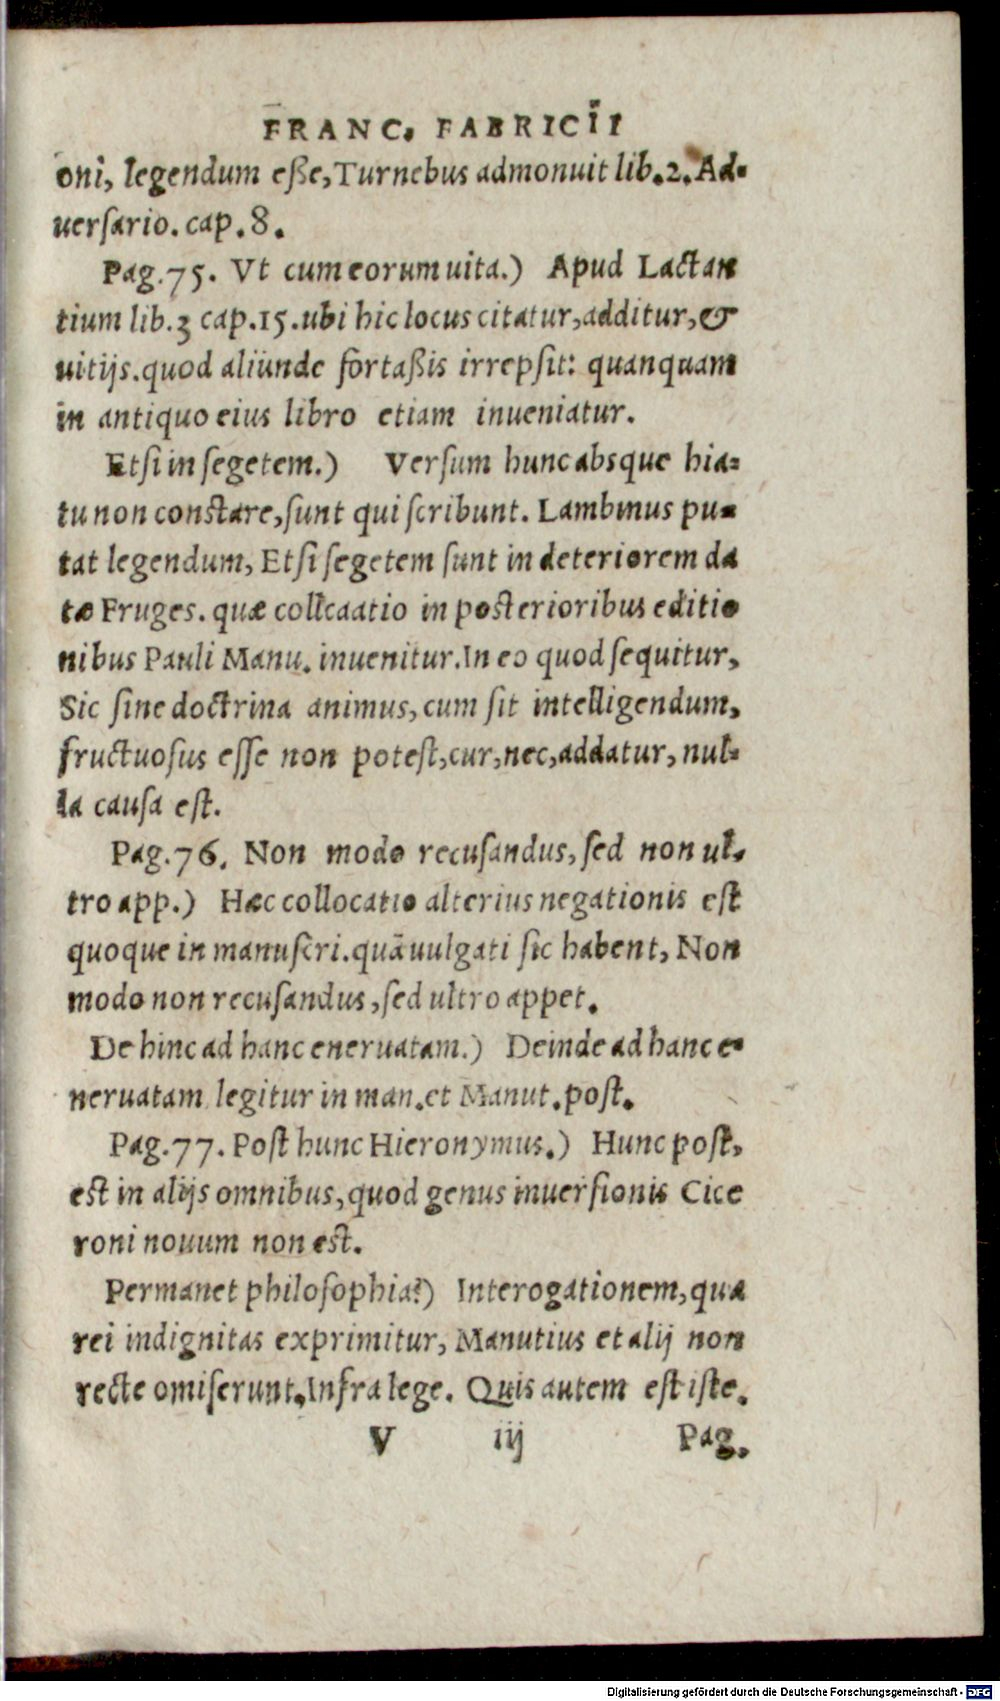 FRANC. FABRICII
oni, legendum eße, Turnebus admonuit lib.2. Ad-
uersario. cap. 8.
Pag.75. Vt cum eorum uita.) Apud Lactan
tium lib.3 cap.15. ubi hic locus citatur, additur, &
uitijs. quod aliunde fortaßis irrepsit: quanquam
in antiquo eius libro etiam inueniatur.
Etsi in segetem.) Versum hunc absque hia-
tu non constare, sunt qui scribunt. Lambinus pu-
tat legendum, Etsi segetem sunt in deteriorem da
tæ Fruges. quæ collcaatio in posterioribus editio
nibus Pauli Manu. inuenitur. In eo quod sequitur,
Sic sine doctrina animus, cum sit intelligendum,
fructuosus esse non potest, cur, nec, addatur, nul-
la causa est.
Pag.76. Non modo recusandus, sed non ul-
tro app.) Hæc collocatio alterius negationis est
quoque in manuscri. quā uulgati sic habent, Non
modo non recusandus, sed ultro appet.
De hinc ad hanc eneruatam.) Deinde ad hanc e-
neruatam legitur in man. et Manut. post.
Pag.77. Post hunc Hieronymus.) Hunc post,
est in alijs omnibus, quod genus inuersionis Cice
roni nouum non est.
Permanet philosophia?) Interogationem, qua
rei indignitas exprimitur, Manutius et alij non
recte omiserunt. Infra lege. Quis autem est iste.
V iij Pag.
Digitalisierung gefördert durch die Deutsche Forschungsgemeinschaft - DFG